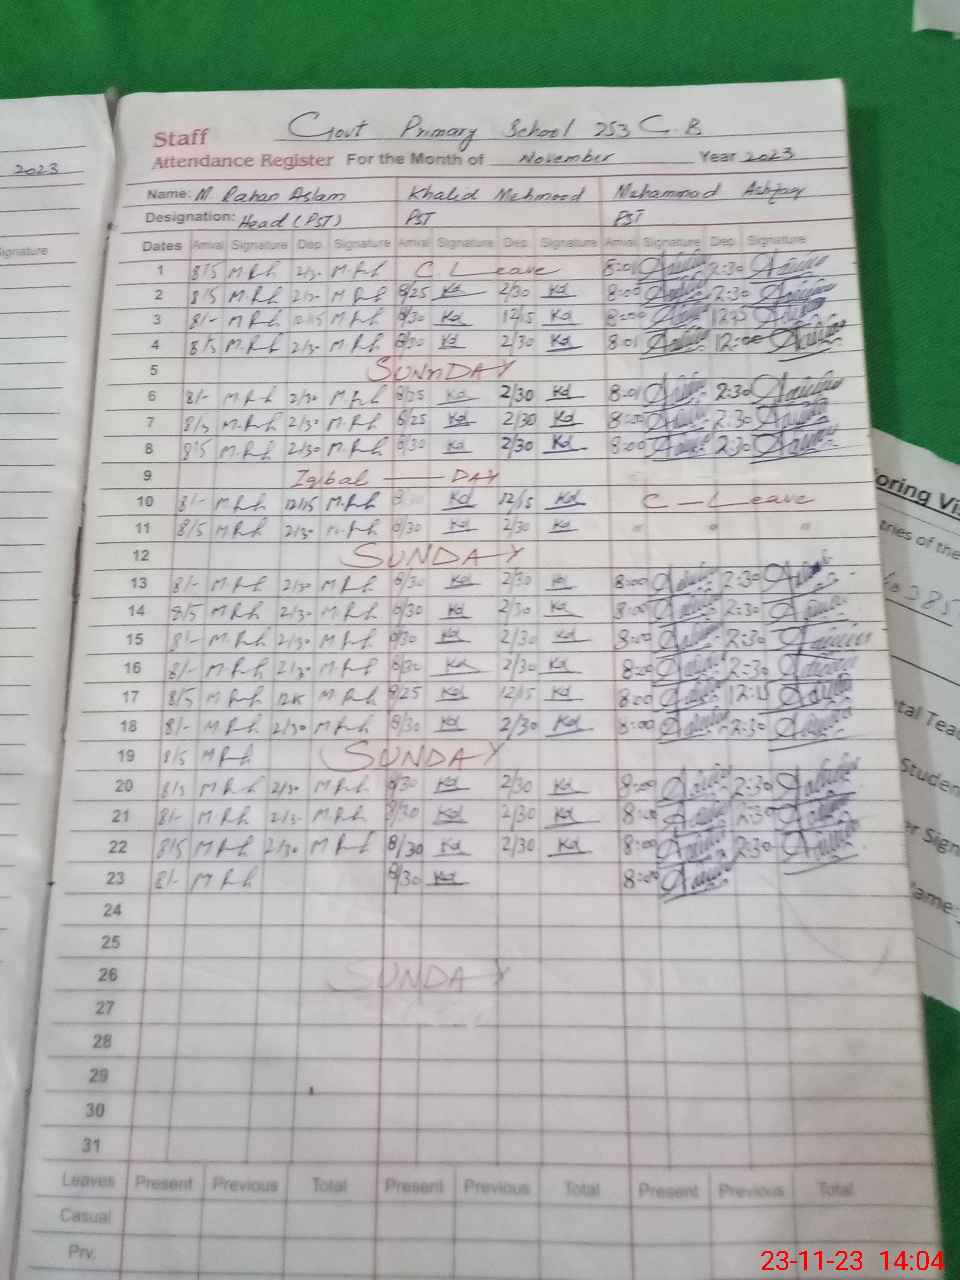 2023
Signature
Staff Govt Primary School 253 G.B
Attendance Register For the Month of November Year 2023
Name: M. Rahan Aslam Khalid Mehmood Muhammad Ashfaq
Designation: Head (PST) PST PST
Dates Arrival Signature Dep. Signature Arrival Signature Dep. Signature Arrival Signature Dep. Signature
1 8/5 M.R.h 2/30 M.R.h C Leave 8:01 2:30
2 8/5 M.R.h 2/30 M.R.h 8/25 Kd 2/30 Kd 8:00 2:30
3 8/- M.R.h 12/15 M.R.h 8/30 Kd 12/15 Kd 8:00 12:15
4 8/5 M.R.h 2/30 M.R.h 8/30 Kd 2/30 Kd 8:01 12:00
5 SUNDAY
6 8/- M.R.h 2/30 M.R.h 8/25 Kd 2/30 Kd 8:01 2:30
7 8/5 M.R.h 2/30 M.R.h 8/25 Kd 2/30 Kd 8:00 2:30
8 8/5 M.R.h 2/30 M.R.h 8/30 Kd 2/30 Kd 8:00 2:30
9 Iqbal DAY
10 8/- M.R.h 12/15 M.R.h Kd 12/15 Kd C-Leave
11 8/5 M.R.h 2/30 M.R.h 8/30 Kd 2/30 Kd " " "
12 SUNDAY
13 8/- M.R.h 2/30 M.R.h 8/30 Kd 2/30 Kd 8:00 2:30
14 8/5 M.R.h 2/30 M.R.h 8/30 Kd 2/30 Kd 8:00 2:30
15 8/- M.R.h 2/30 M.R.h 8/30 Kd 2/30 Kd 8:00 2:30
16 8/- M.R.h 2/30 M.R.h 8/30 Kd 2/30 Kd 8:00 2:30
17 8/5 M.R.h M.R.h 8/25 Kd 12/15 Kd 8:00 12:15
18 8/- M.R.h 2/30 M.R.h 8/30 Kd 2/30 Kd 8:00 2:30
19 8/5 M.R.h SUNDAY
20 8/5 M.R.h 2/30 M.R.h 8/30 Kd 2/30 Kd 8:00 2:30
21 8/- M.R.h 2/30 M.R.h 8/30 Kd 2/30 Kd 8:00 2:30
22 8/5 M.R.h 2/30 M.R.h 8/30 Kd 2/30 Kd 8:00 2:30
23 8/- M.R.h 8/30 Kd 8:00
24
25
26 SUNDAY
27
28
29
30
31
Leaves Present Previous Total Present Previous Total Present Previous Total
Casual
Prv.
oring Vis
ories of the
385
tal Teac
Studen
er Sign
ame:
23-11-23 14:04